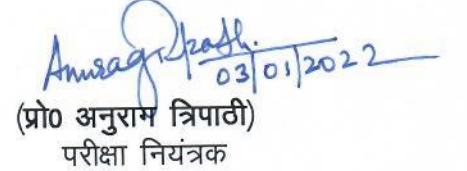 Anurag Tripathi.
03/01/2022
(प्रो0 अनुराग त्रिपाठी)
परीक्षा नियंत्रक